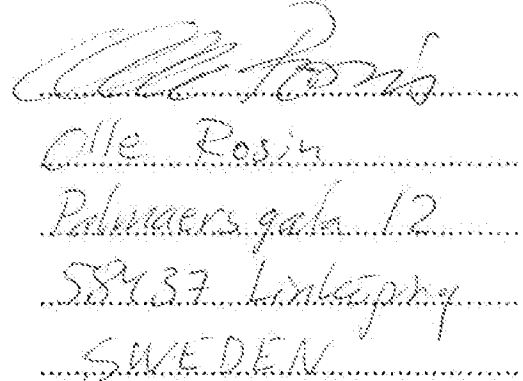 Olle Rosin
Palmaers gata 12
58437 Linköping
SWEDEN